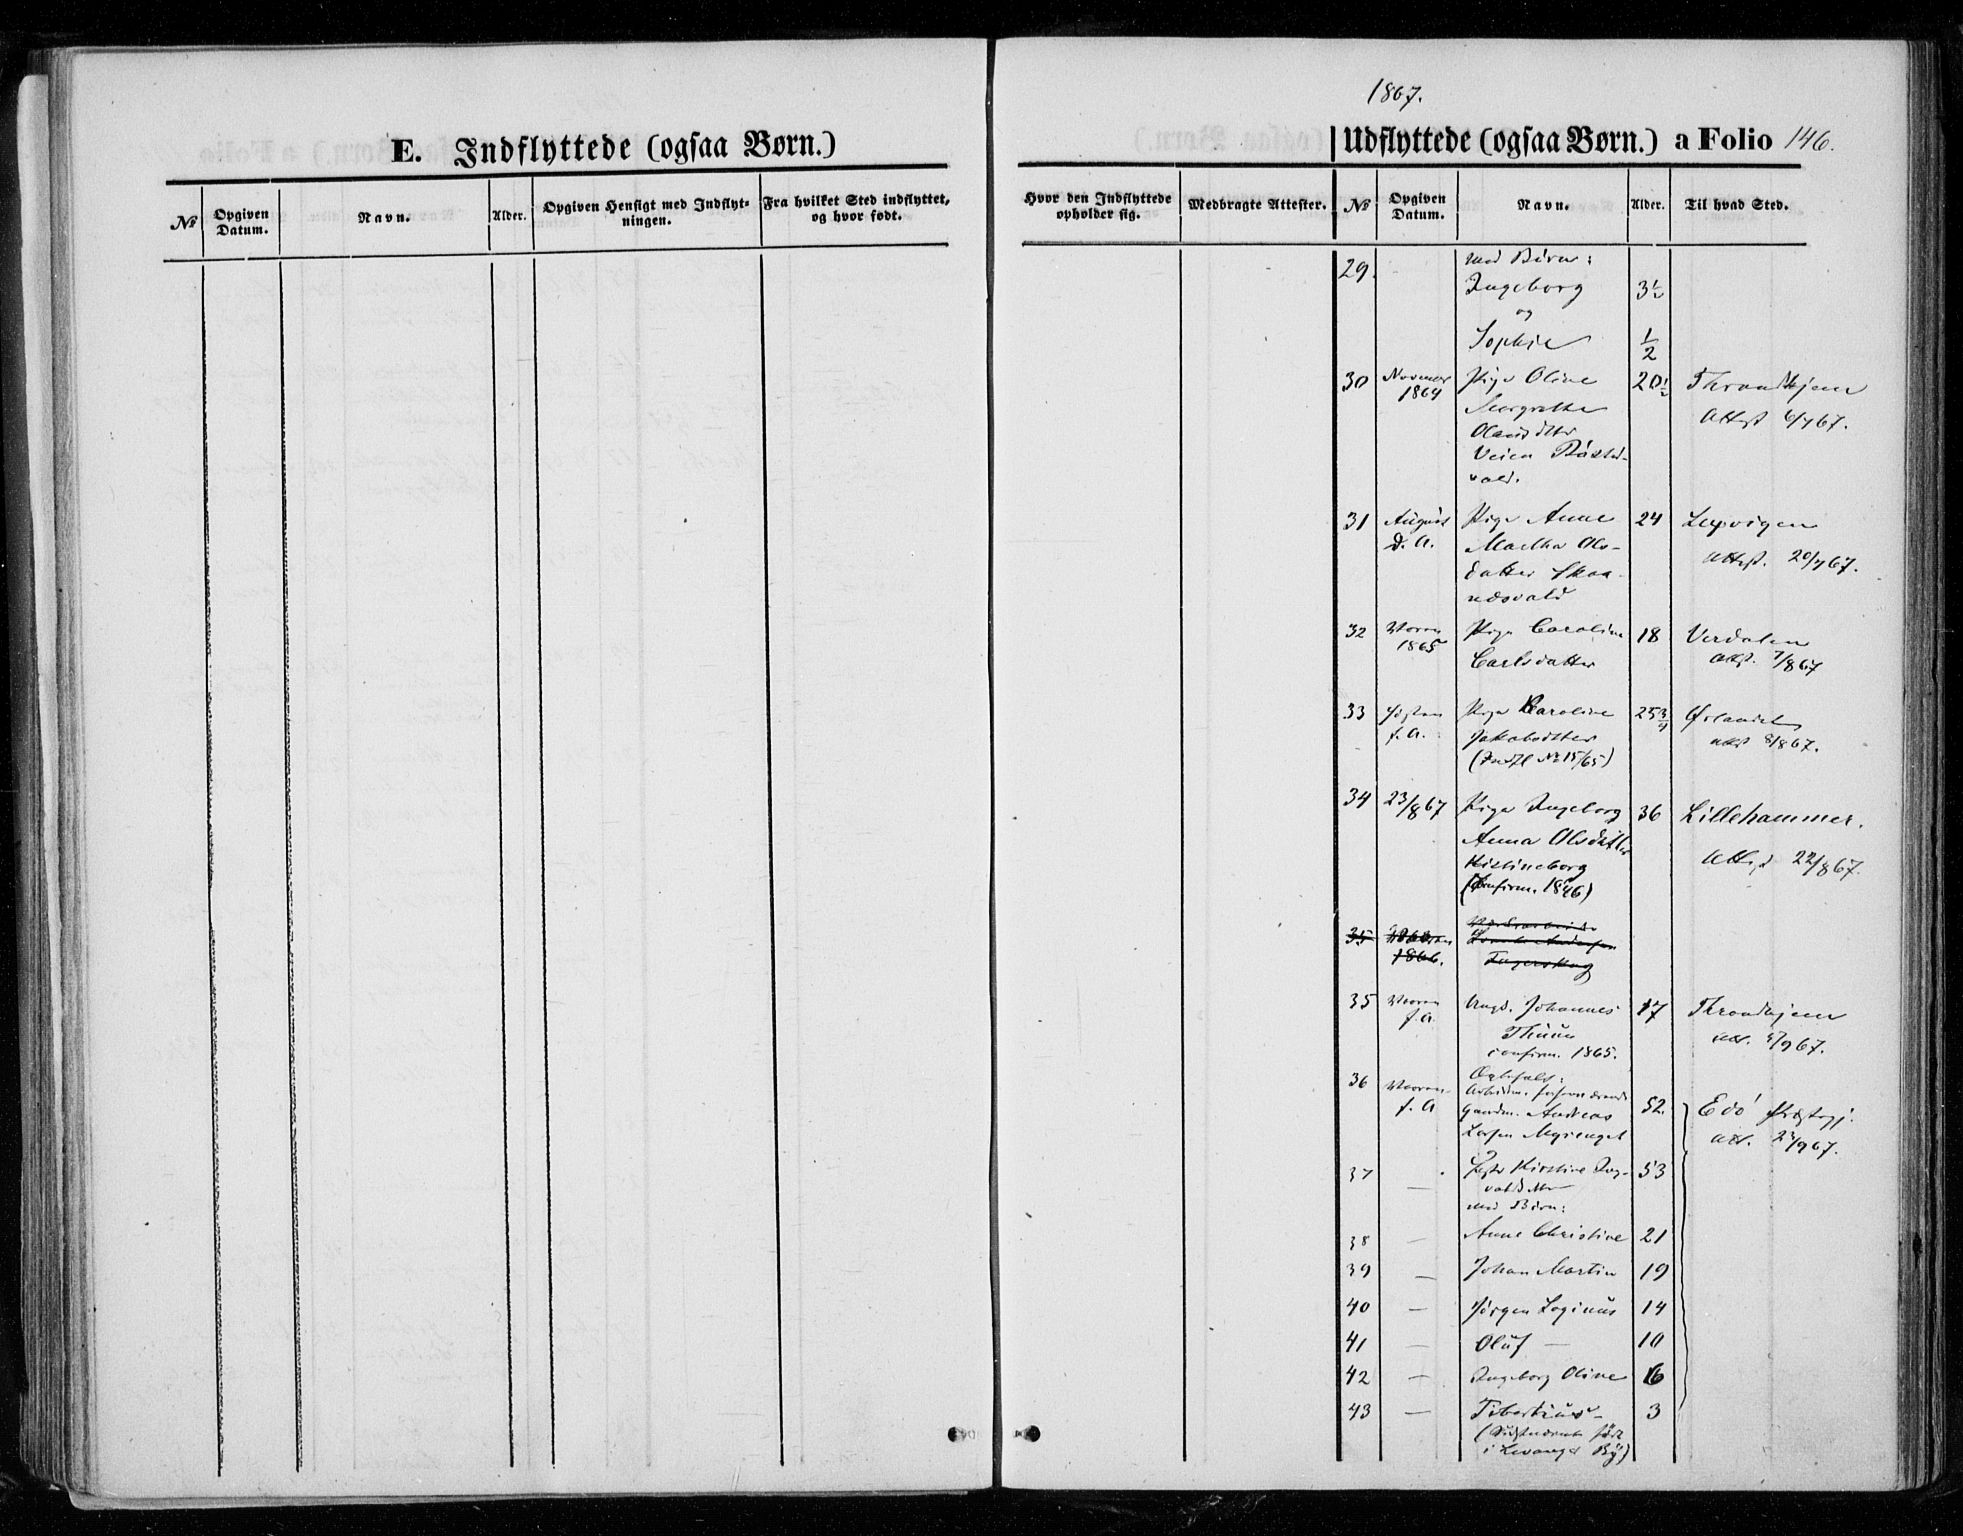 1867.
E. Indflyttede (ogsaa Børn.)
Udflyttede (ogsaa Børn.) a Folio 146.
№ Opgiven Datum. Navn. Alder. Opgiven Hensigt med Indflytningen. Fra hvilket Sted indflyttet, og hvor født.
Hvor den Indflyttede opholder sig. Medbragte Attester. № Opgiven Datum. Navn. Alder. Til hvad Sted.
29. med Børn:
Ingeborg 3½
og
Sophie ½
30 1864 Pige Oline 20½ Throndhjem
Margrethe Attest 6/7 67.
Olausdtter
Veien
vald.
31 August Pige Anne 24 Lexvigen
d. A. Martha Ols- Attest. 20/7 67.
datter Skaa-
nesvald
32 Vaaren Pige Caroline 18 Verdalen
1865 Carlsdatter Att. 7/8 67
33 Høsten Pige Karoline 25¾ Ørlandet
f. A. Jakobsdtter att 8/8 67.
(Indfl № 15/65)
34 23/8 67 Pige Ingeborg 36 Lillehammer.
Anna Olsdatter Attest 22/8 67.
Kistineborg
(Confirm. 1846)
35
1866.
35 Vaaren Ungk. Johannes 17 Throndhjem
f. A. Thuun att. 5/9 67.
confirm. 1865.
36 Vaaren Ægtefolk:
f. A Arbeidsm. forhenværende
Gaardm. Andreas 52. Edø Præstegj.
Larsen Myrenget att. 27/9 67.
37 — Kirstine Ing- 53
valdsdtter
med Børn:
38 — Anne Christine 21
39 — Johan Martin 19
40 — Jørgen Loginus 14
41 — Oluf — 10
42 — Ingeborg Oline 6
43 — Tibertius 3
(Sidstnævnte født
i Levanger By)